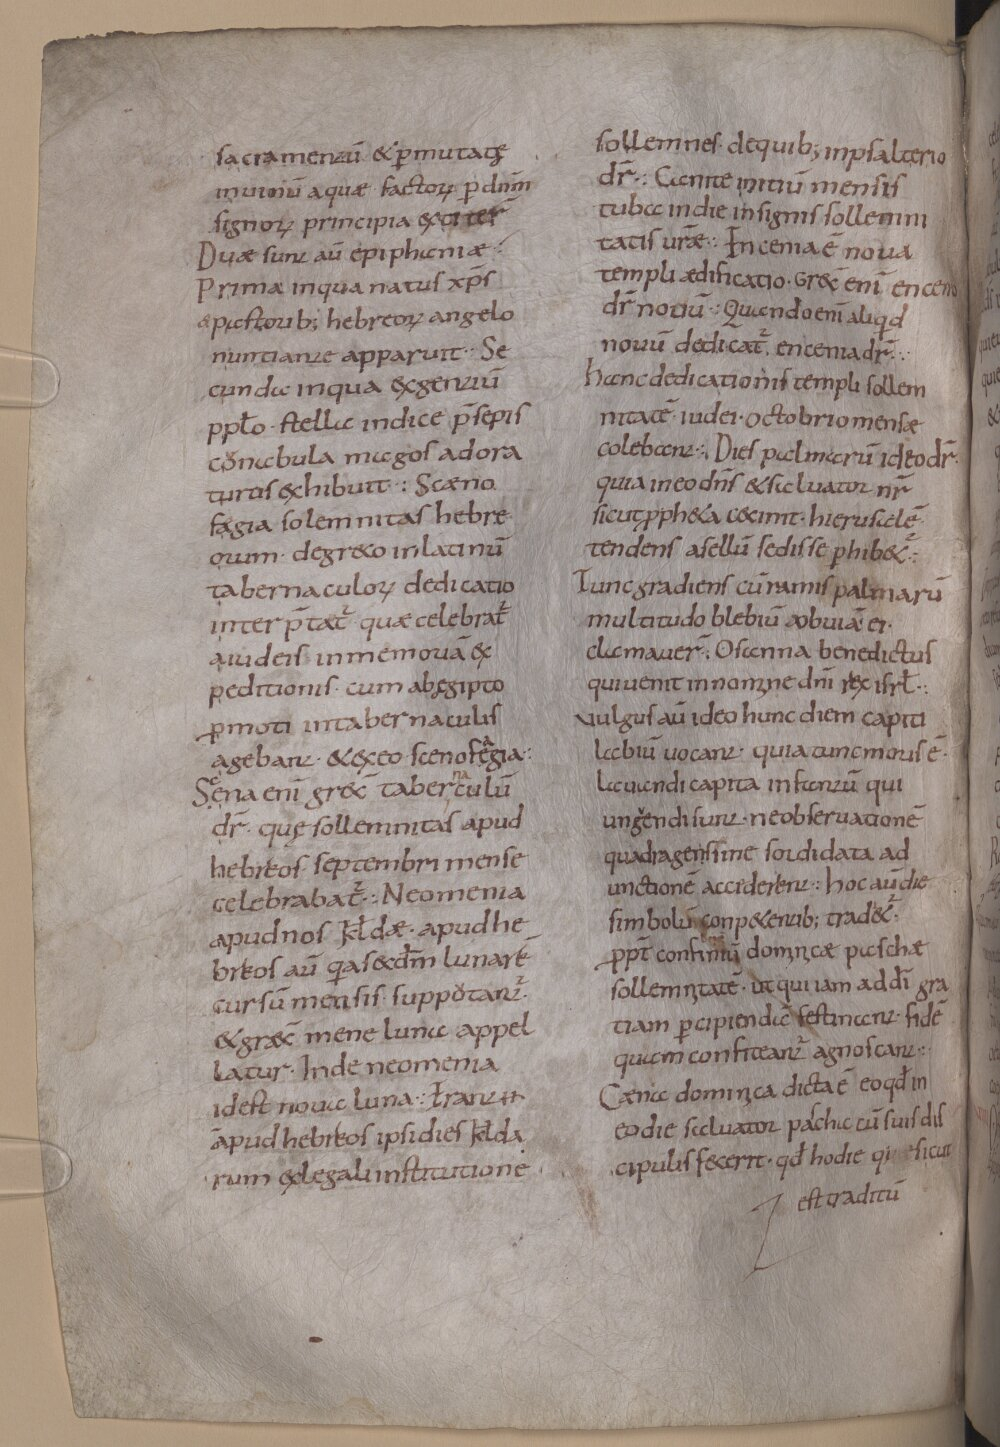 sacramentū &ꝑmutatę
inuinū aquae factoꝝ ꝑ dn̄m
signoꝝ principia extiter̄
Duae sunt aū epiphaniae ·:
Prima inqua natus xp̄s
&pastorib; hebreoꝝ angelo
nuntiante apparuit ·: Se
cunda inqua exgentiū
pp̄lo · stella indice p̄sepis
cōnabula magos adora
turus exhibuit ·: Scaeno
fagia solemnitas hebre
orum · degreco inlatinū
tabernaculoꝝ dedicatio
inter p̄tat̄ quae celebrat̄
aiudeis inmemoriā ex
peditionis · cum abegipto
ꝑmoti intabernaculis
agebant · &exeo scenofagia ·:
Scena enī grec̄ tabernaculū
dr̄ · quę sollemnitas apud
hebreos septembri mense
celebrabat̄ ·: Neomenia
apudnos kl̄dae · apud he
breos aū q̄a secdm̄ lunarē
cursū mensis supputant̄ ·
&graec̄ mene luna appel
latur · Inde neomenia
idest noua luna ·: Erant
apud hebreos ipsi dies kl̄da
rum exlegali institutione
sollemnes dequib; inpsalterio
dr̄ ·: Canite initiū mensis
tuba indie insignis sollemni
tatis urae ·: Incenia ē noua
templi aedificatio · Grec̄ enī enceno
dr̄ nouū ·: Quando enī aliqid
nouū dedicat̄ · encenia dr̄ ·:
hanc dedicationis templi sollem
nitatē · iudei · octobrio mensae
colebant ·: Dies palmarū ideo dr̄ ·
quia ineo dn̄s &saluator nr̄
sicut ꝓpheta cecinit · hierusalē
tendens asellū sedisse phibet̄ ·:
Tunc gradiens cū ramis palmarū
multitudo blebiū obuiā ei ·
clamauer̄ · Osanna benedictus
quiuenit innomine dn̄i rex isrl̄ ·:
Vulgus aū ideo hunc diem capiti
labiū uocant · quia tunc moris ē ·
lauandi capita infantū qui
ungendi sunt · ne obseruationē
quadragenssime sordidata ad
unctionē accederent ·: hoc aū die
simbolū conpetentib; tradet̄ ·
ꝓpt̄ confiniū dominicae paschae
sollemnitatē · ut qui iam ad dī gra
tiam ꝑcipiendā festinant · fidē
quam confiteant̄ agnoscant ·:
Caena dominica dicta ē eo qd̄ in
eo die saluator pascha cū suis dis
cipulis fecerit · qd̄ hodie sicut
est traditū